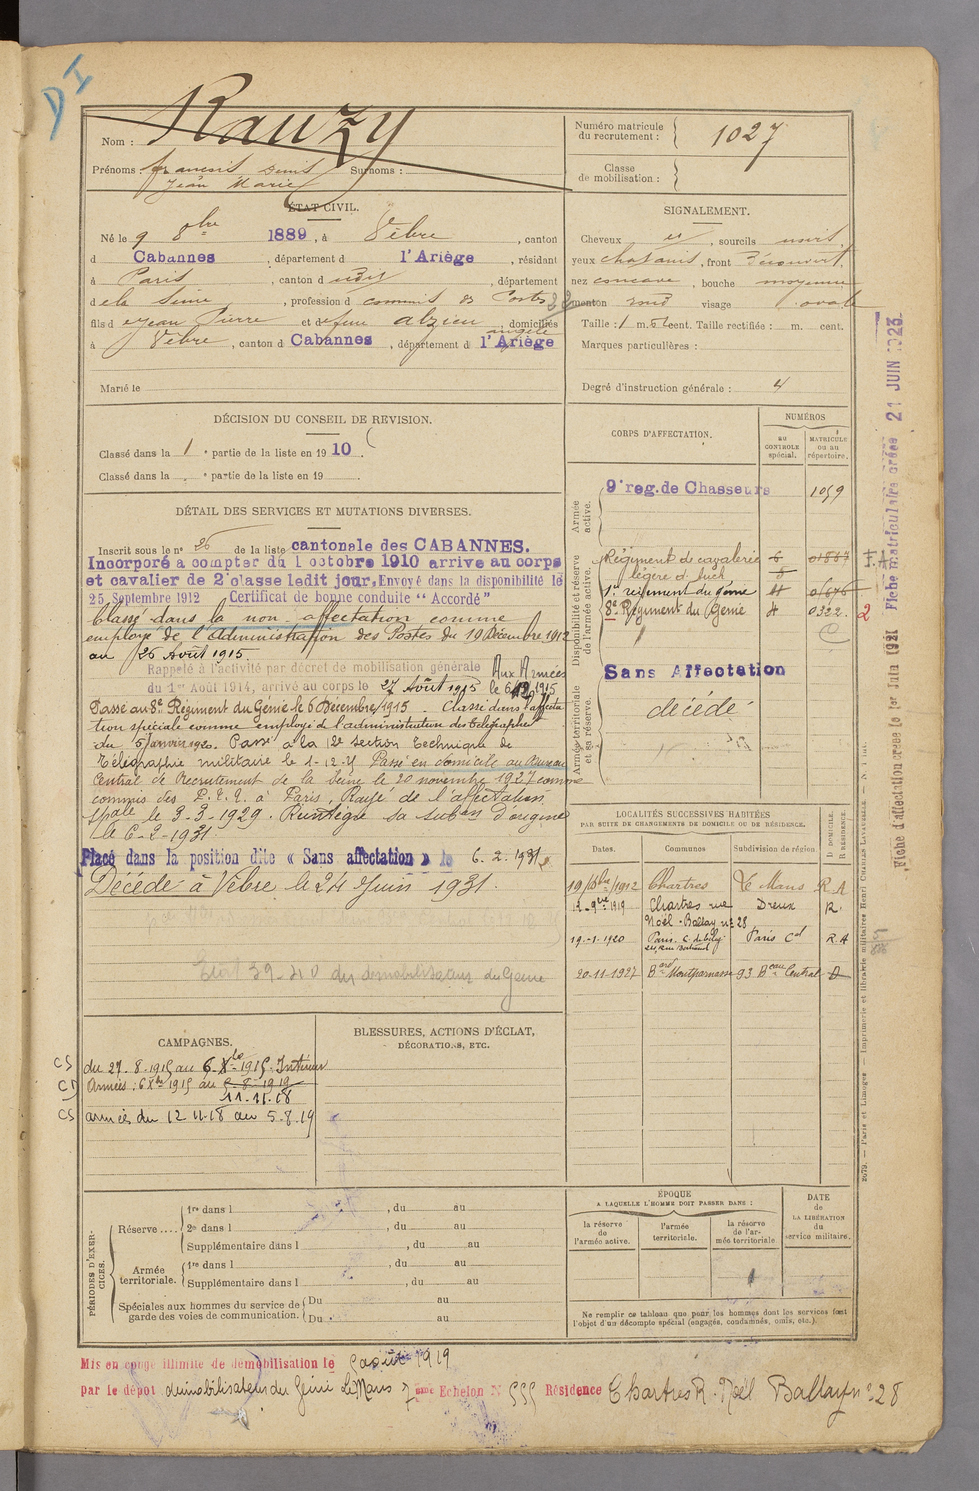 DI
Nom : Rauzy
Prénoms : francois Denis Surnoms :
Jean Marie
Numéro matricule
du recrutement : 1027
Classe
de mobilisation :
ÉTAT CIVIL.
Né le 9 8bre 1889, à Vèbre, canton
d Cabannes, département d l'Ariège, résidant
à Paris, canton d udit, département
de la Seine, profession d commis des Postes
fils d e Jean Pierre et de feue alzieu angèle, domiciliés
à Vèbre, canton d Cabannes, département d l'Ariège
Marié le
SIGNALEMENT.
Cheveux, sourcils noirs,
yeux chatains, front découvert,
nez concave, bouche moyenne
menton rond visage ovale
Taille : 1 m. 62 cent. Taille rectifiée : m. cent.
Marques particulières :
Degré d'instruction générale : 4
DÉCISION DU CONSEIL DE REVISION.
Classé dans la 1 e partie de la liste en 1910.
Classé dans la e partie de la liste en 19
CORPS D'AFFECTATION.
NUMÉROS
au
CONTROLE
spécial.
MATRICULE
ou au
répertoire.
Armée
active.
9e reg. de Chasseurs 1059
Disponibilité et réserve
de l'armée active.
Régiment de cavalerie 6 01867 F.A
légère d'Auch 5
1er régiment du génie 4 01676
8e Régiment du Génie 4 0322. 2
Armée territoriale
et sa réserve.
Sans Affectation
décédé
DÉTAIL DES SERVICES ET MUTATIONS DIVERSES.
Inscrit sous le no 26 de la liste cantonale des CABANNES.
Incorporé a compter du 1 octobre 1910 arrive au corps
et cavalier de 2e classe ledit jour, Envoyé dans la disponibilité le
25 Septembre 1912 Certificat de bonne conduite "Accordé"
Classé dans la non affectation comme
employé de l'Administration des Postes du 19 Décembre 1912
au 26 Août 1915
Rappelé à l'activité par décret de mobilisation générale Aux Armées
du 1er Août 1914, arrivé au corps le 27 Août 1915 le 6 1915
Passé au 8e Régiment du Génie le 6 Décembre 1915. Classé dans l'affecta
tion spéciale comme employé de l'administration des télégraphes
du 5 janvier 1920. Passé à la 12e Section technique de
Télégraphie militaire le 1-12-21 Passé en domicile au Bureau
Central de Recrutement de la Seine le 20 novembre 1927 comme
commis des P.T.T. à Paris. Rayé de l'affectation
spale le 3-3-1929. Réintégré sa subon d'origine
le 6-2-1931
Placé dans la position dite « Sans affectation » le 6.2.1931
Décédé à Vèbre le 24 Juin 1931.
Etat 39-40 des démobilisateurs du Génie
LOCALITÉS SUCCESSIVES HABITÉES
PAR SUITE DE CHANGEMENTS DE DOMICILE OU DE RÉSIDENCE.
Dates. Communes Subdivision de région D DOMICILE. R RÉSIDENCE.
19/Xbre/1912 Chartres Le Mans R A
12-9bre 1919 Chartres rue Dreux R.
Noël-Ballay no 28
19-1-1920 Paris Paris Cal R.A
20-11-1927 Bard Montparnasse 93 Beau Central D
CAMPAGNES.
CS du 27.8.1915 au 6-Xbre-1915. Intérieur
CD Armées : 6 Xbre 1915 au 5-8-1919
11.11.18
CS armées du 12.11.18 au 5.8.19
BLESSURES, ACTIONS D'ÉCLAT,
DÉCORATIONS, ETC.
PÉRIODES D'EXERCICES.
Réserve .... 1re dans l , du au
2e dans l , du au
Supplémentaire dans l , du au
Armée
territoriale. 1re dans l , du au
Supplémentaire dans l , du au
Spéciales aux hommes du service de
garde des voies de communication. Du au
Du au
ÉPOQUE
A LAQUELLE L'HOMME DOIT PASSER DANS :
la réserve
de
l'armée active.
l'armée
territoriale.
la réserve
de l'ar-
mée territoriale
DATE
de
LA LIBÉRATION
du
service militaire.
Ne remplir ce tableau que pour les hommes dont les services font
l'objet d'un décompte spécial (engagés, condamnés, omis, etc.).
Mis en congé illimité de démobilisation le 5 août 1919
par le dépôt démobilisateur du Génie Le Mans 7 ème Echelon N 555 Résidence Chartres R. Noël Ballay no 28
Fiche d'affectation créée le 1er Juin 1921 Fiche matriculaire créée 21 JUIN 1923
2079. — Paris et Limoges — Imprimerie et librairie militaires Henri CHARLES-LAVAUZELLE.